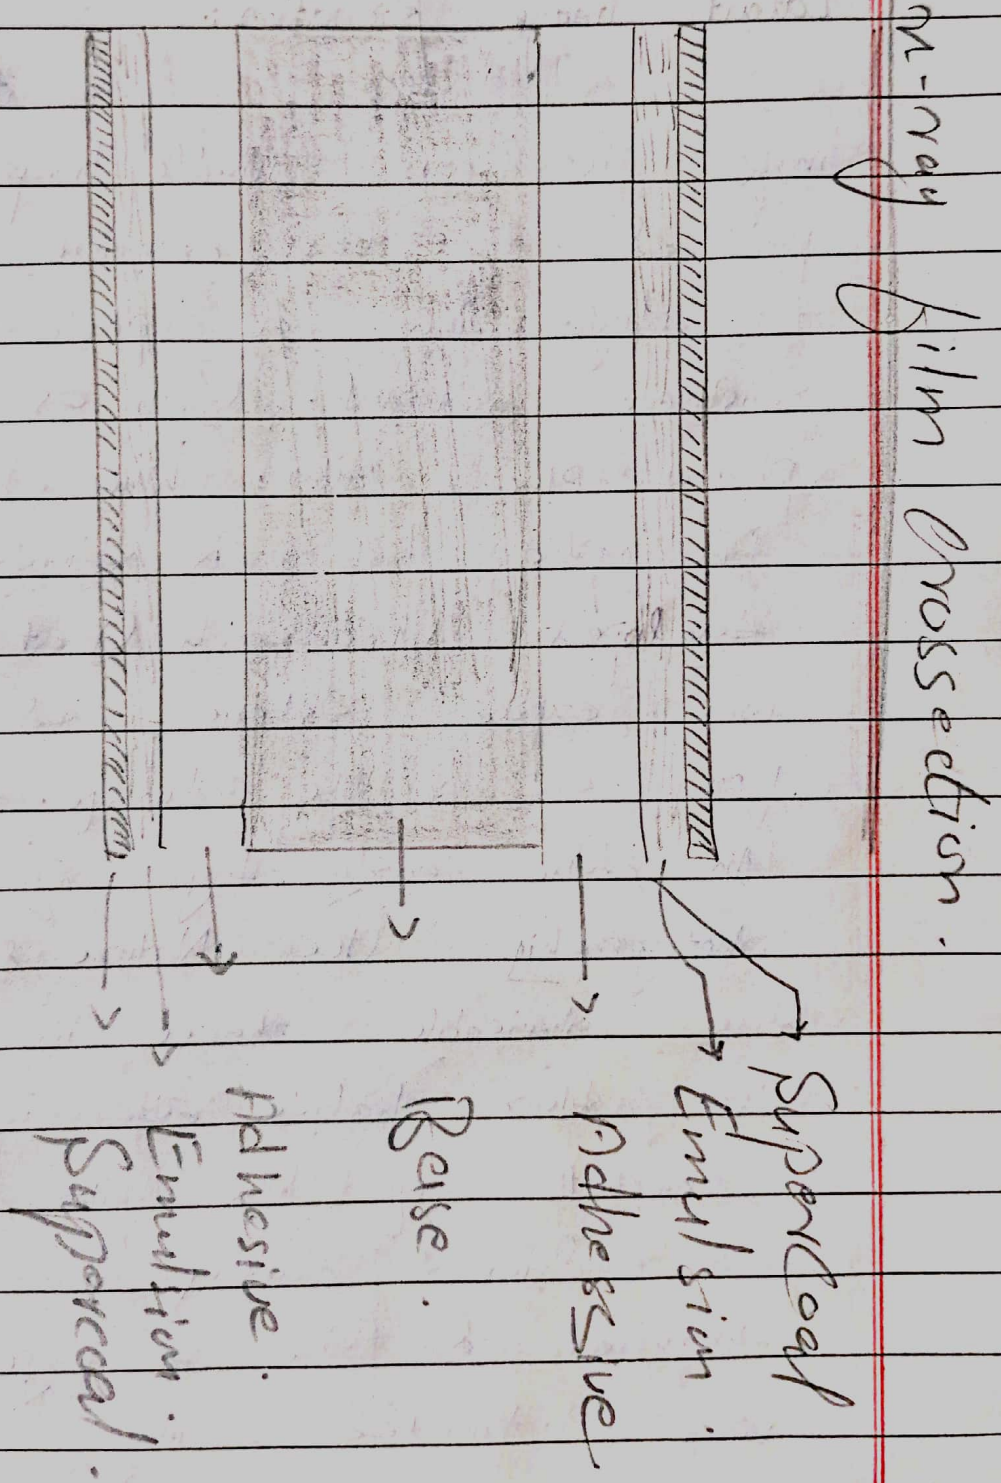 x-ray film Crossection.
Supercoat
Emulsion.
Adhessive
Base.
Adhesive.
Emultion.
Suporcoat.